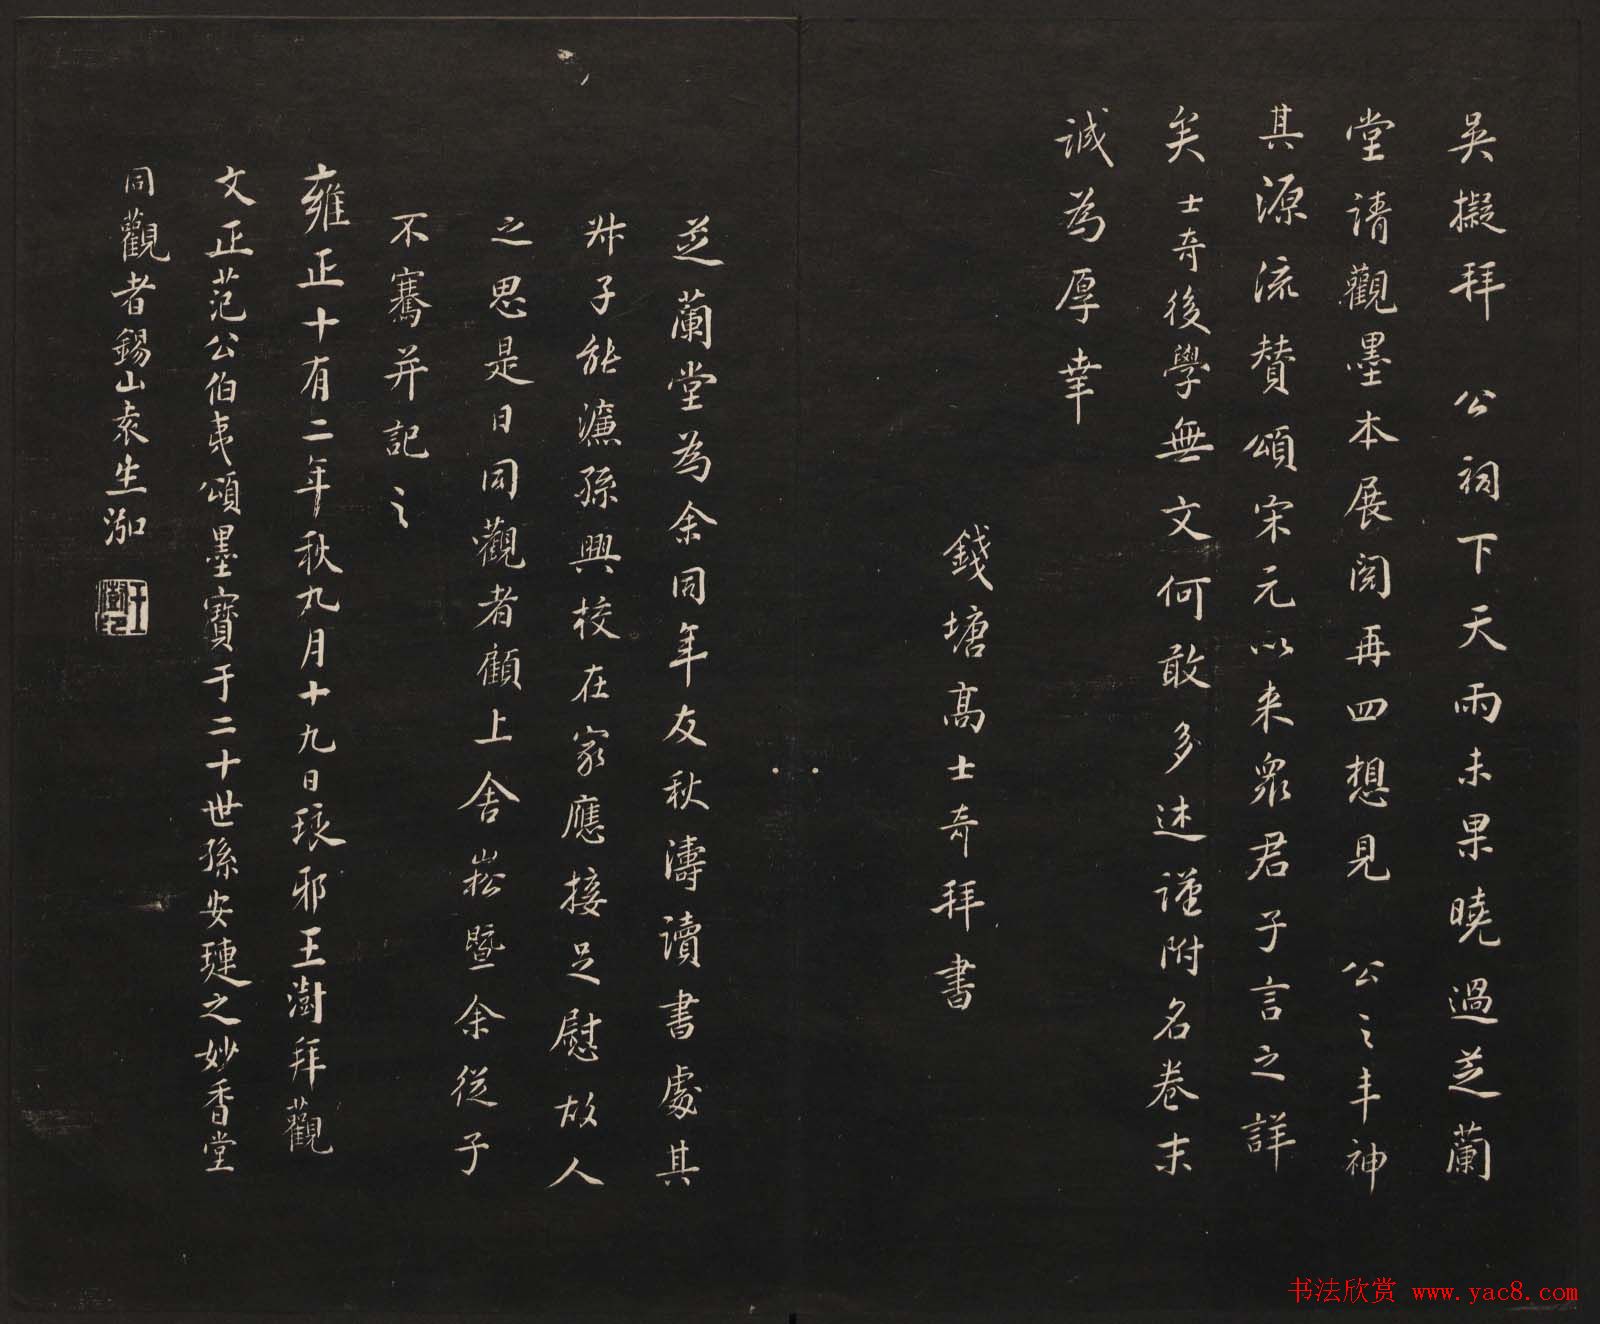 吳擬拜 公祠下天雨未果曉過芝蘭
堂請觀墨本展閱再四想見 公之丰神
其源流贊頌宋元以来衆君子言之詳
矣士奇後學無文何敢多述謹附名卷末
誠為厚幸
錢塘高士奇拜書
芝蘭堂為余同年友秋濤讀書處其
姪子能濂孫興校在家應接足慰故人
之思是日同觀者顧上舍崧暨余從子
不騫并記之
雍正十有二年秋九月十九日琅邪王澍拜觀
文正范公伯夷頌墨寶于二十世孫安璉之妙香堂
同觀者錫山袁生泓
王澍
書法欣賞 www.yac8.com